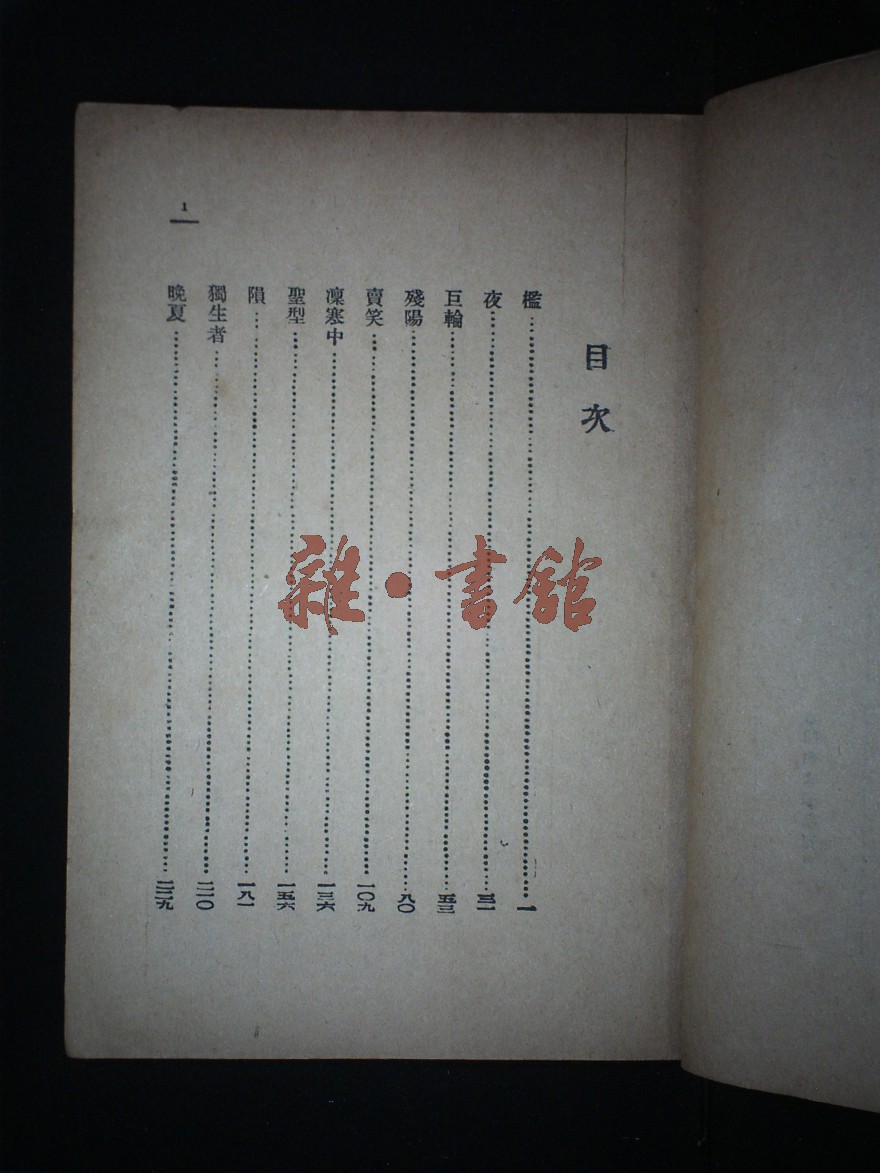 目次
檻……一
夜……三一
巨輪……五三
殘陽……八〇
賣笑……一〇九
凜寒中……一三六
聖型……一五六
隕……一八一
獨生者……二一〇
晚夏……二二九
1
雜·書館